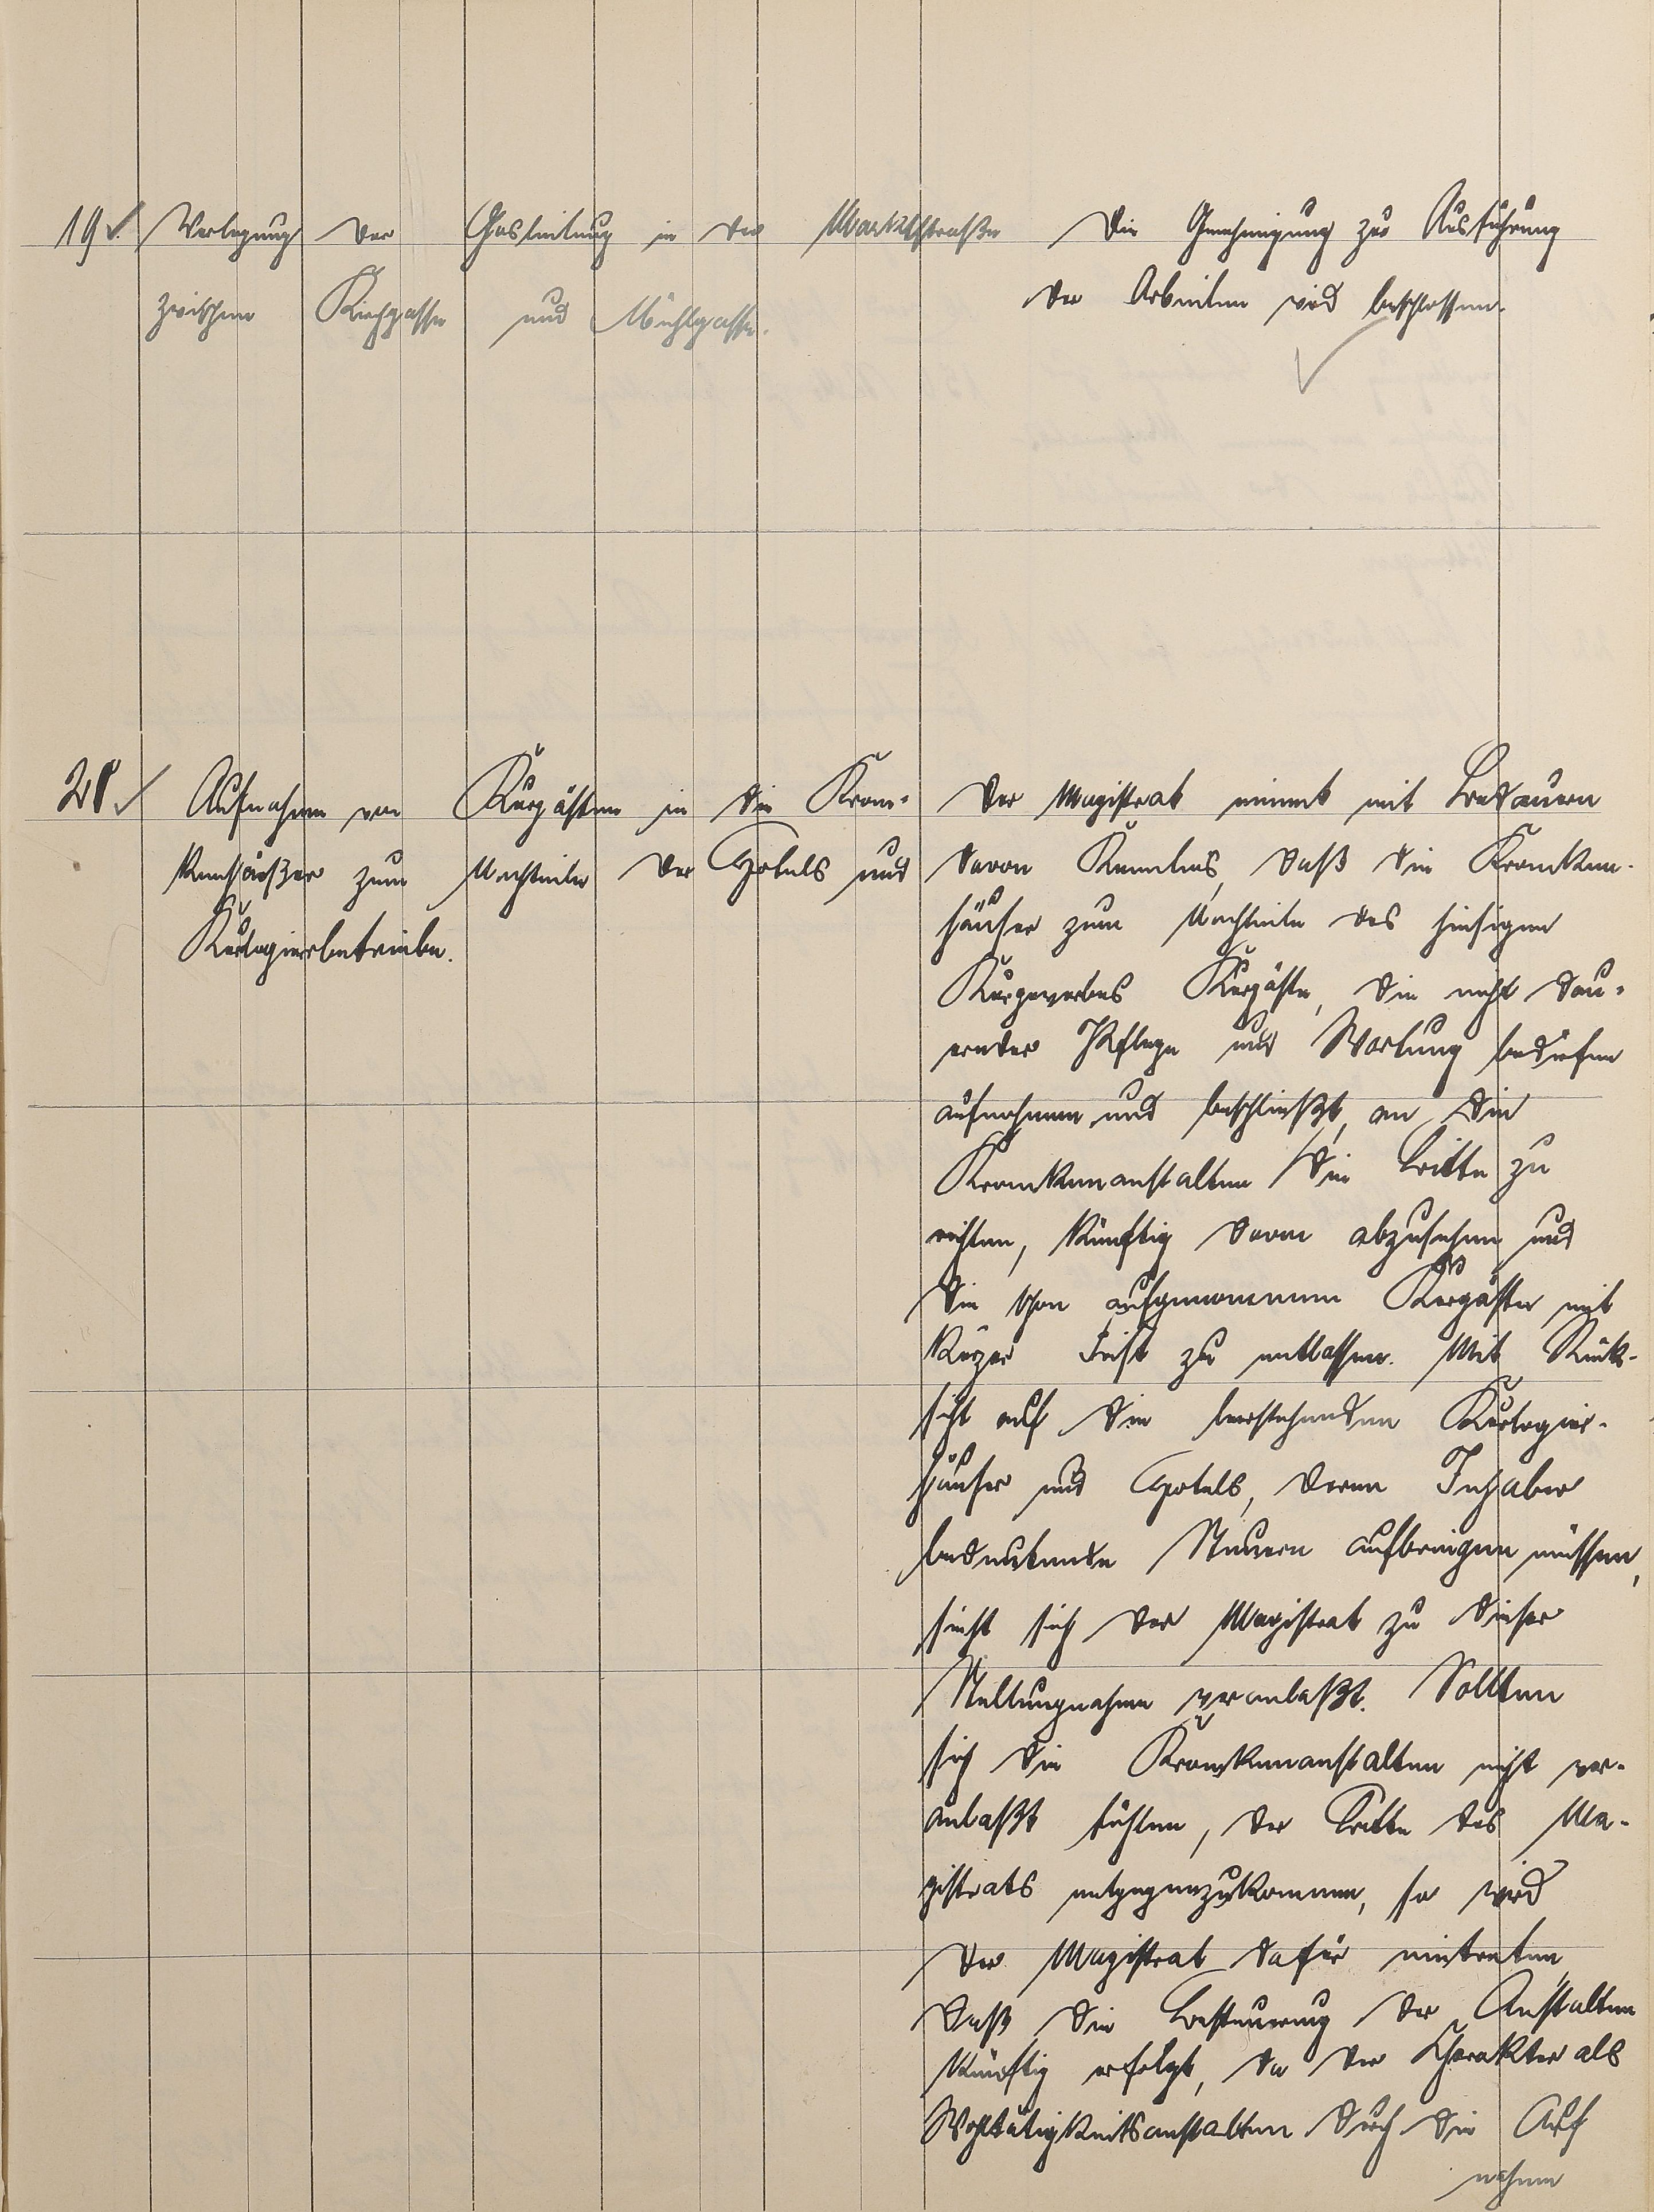 19. Verlegung der Gasleitung in der Marktstraße
zwischen Kirchgasse und Mühlgasse.
Die Genehmigung zur Ausführung
der Arbeiten wird beschlossen.
20. Aufnahme von Kurgästen in die Kran-
kenhäußer zum Nachteile der Hotels und
Kurlogierbetriebe.
Der Magistrat nimmt mit Bedauern
davon Kenntnis, daß die Kranken-
häuser zum Nachteile des hiesigen
Kurgewerbes Kurgäste, die nicht dau-
ernder Pflege und Wartung bedürfen
aufnehmen und beschließt, an die
Krankenanstalten die Bitte zu
richten, künftig davon abzusehen und
die schon aufgenommenen Kurgäste mit
kurzer Frist zu entlassen. Mit Rück-
sicht auf die leerstehenden Kurlogier-
häuser und Hotels, deren Inhaber
bedeutende Steuern aufbringen müssen,
sieht sich der Magistrat zu dieser
Stellungnahme veranlaßt. Sollten
sich die Krankenanstalten nicht ver-
anlaßt fühlen, der Bitte des Ma-
gistrats entgegenzukommen, so wird
der Magistrat dafür eintreten,
daß die Besteuerung der Anstalten
künftig erfolgt, da der Charakter als
Wohltätigkeitsanstalten durch die Auf
nahme